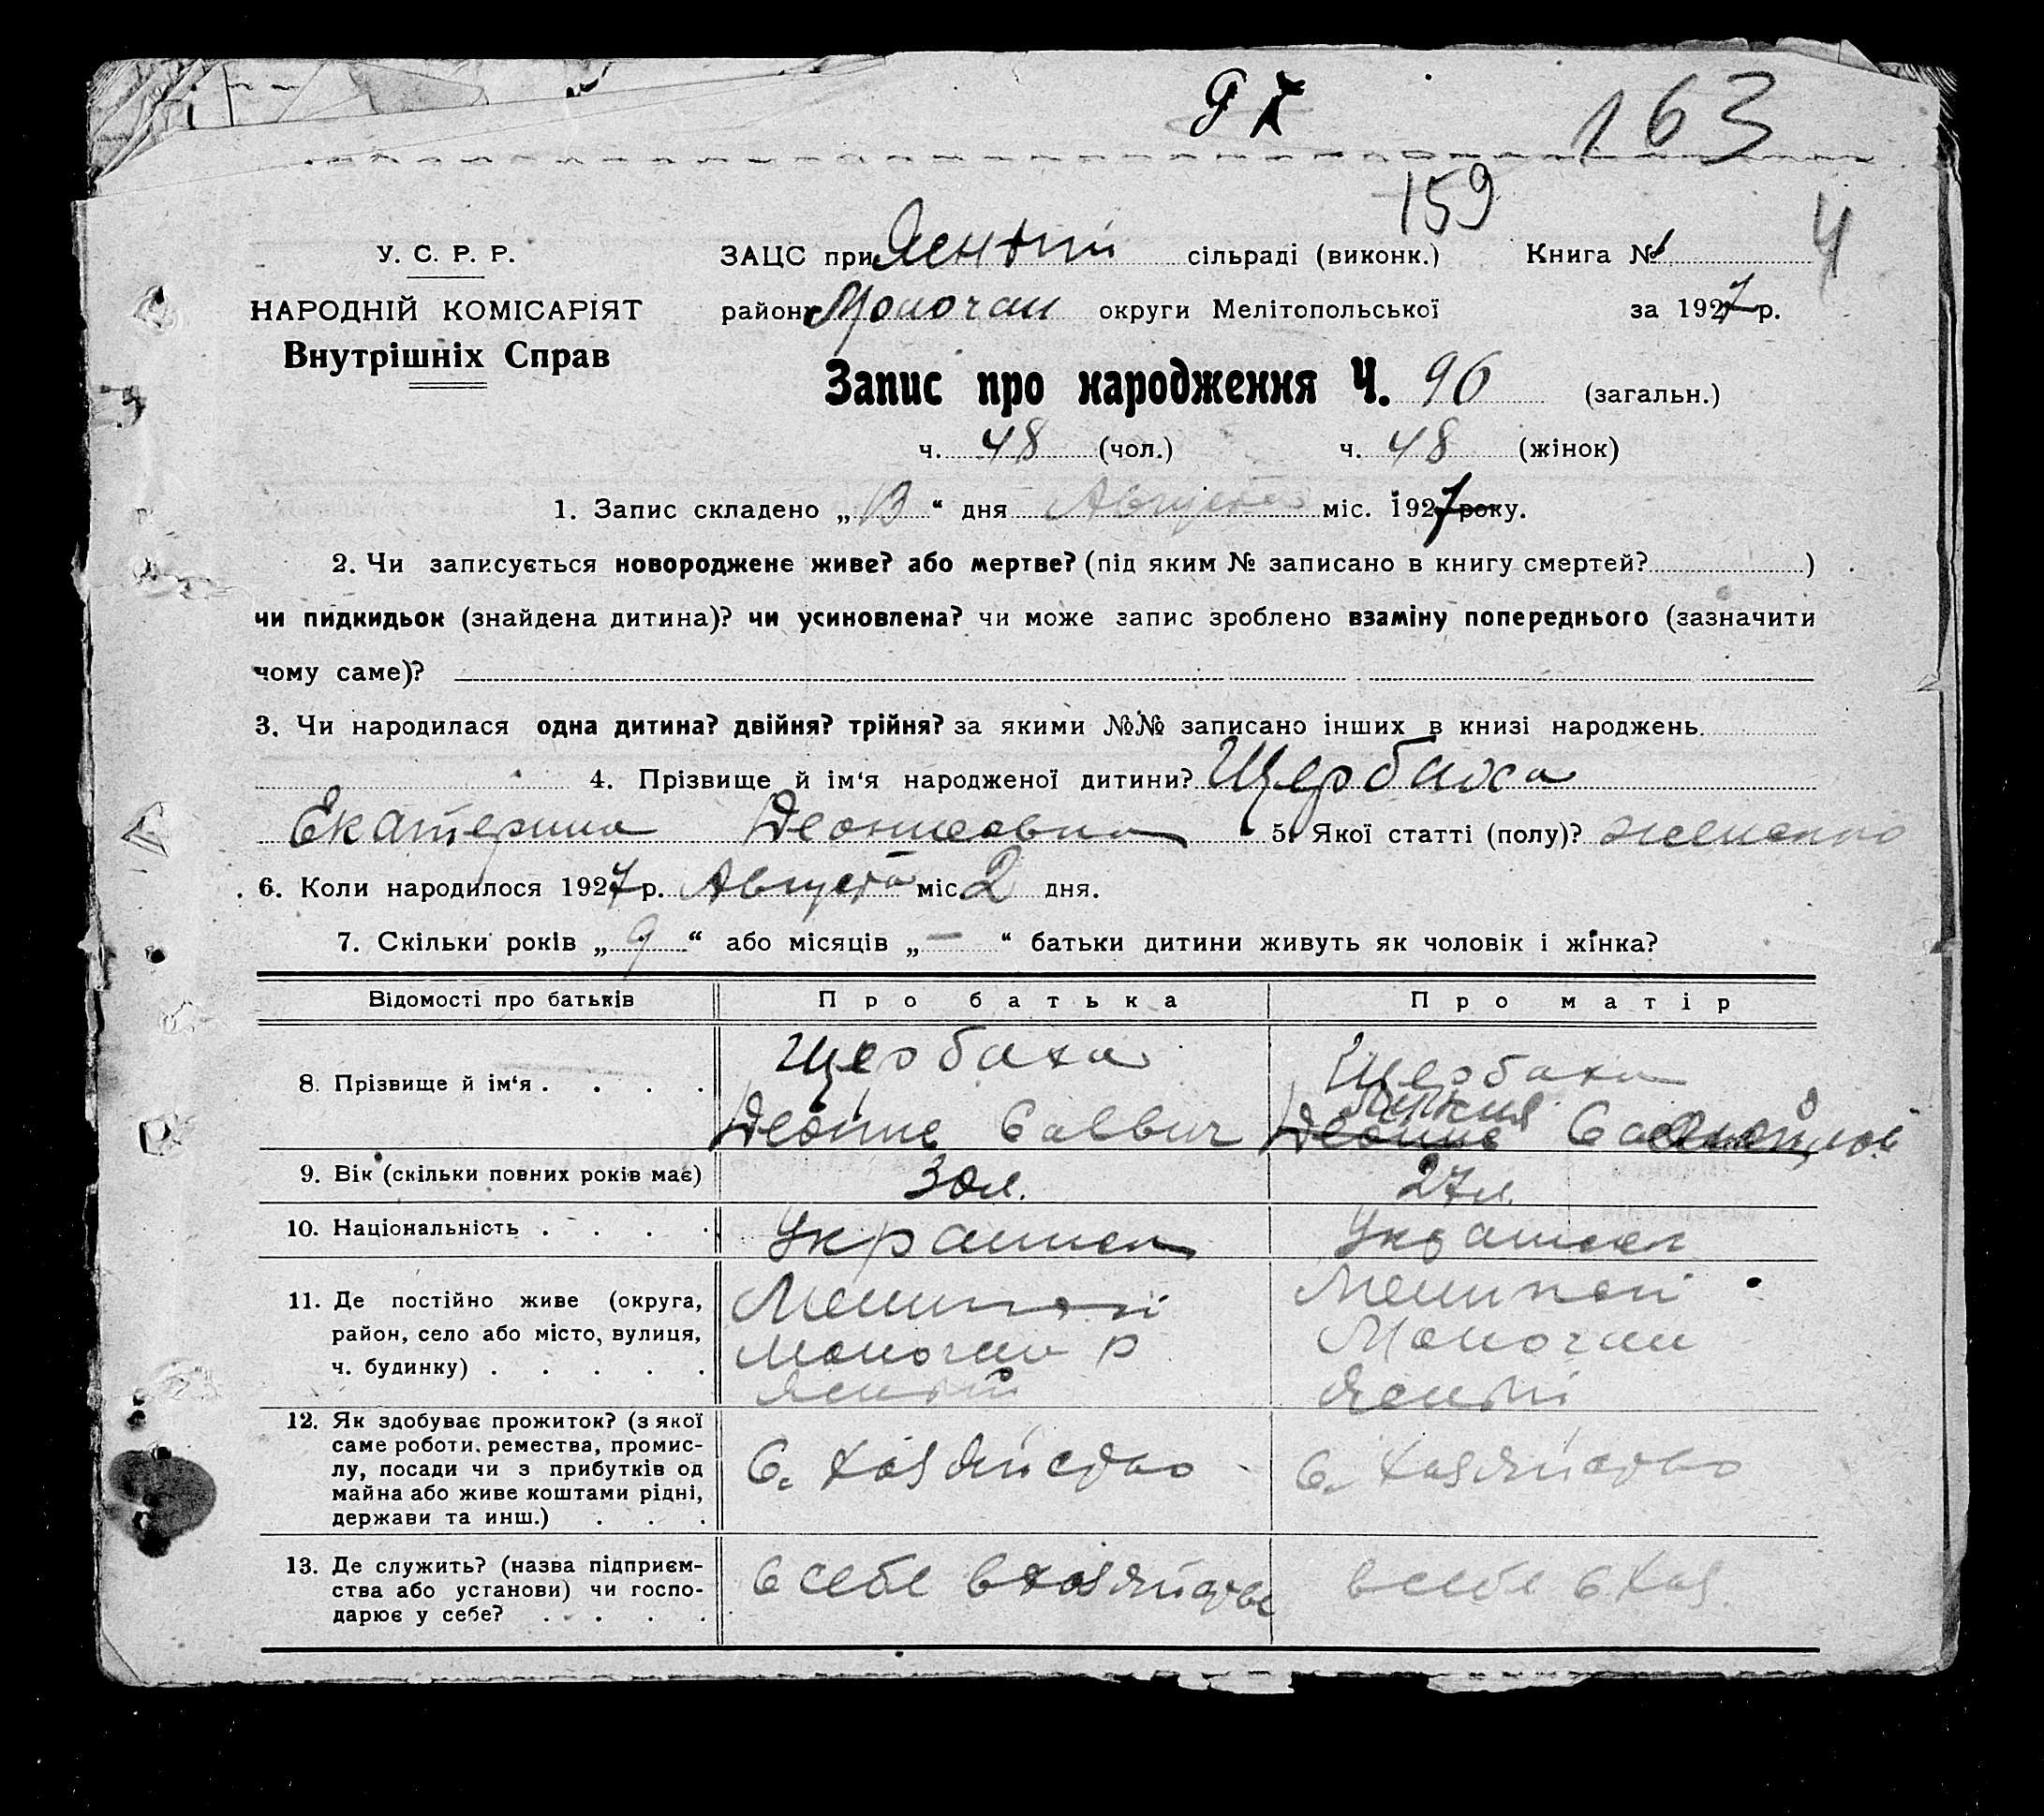 163
159
4
У. С. Р. Р.
ЗАЦС при сільраді (виконк.) Книга № 1
НАРОДНІЙ КОМІСАРІЯТ
району округи Мелітопольської за 1927 р.
Внутрішніх Справ
Запис про народження Ч. 96 (загальн.)
ч. 48 (чол.) ч. 48 (жінок)
1. Запис складено „ 13 “ дня Августа міс. 1927 року.
2. Чи записується новороджене живе? або мертве? (під яким № записано в книгу смертей? )
чи пидкидьок (знайдена дитина)? чи усиновлена? чи може запис зроблено взаміну попереднього (зазначити
чому саме)?
3. Чи народилася одна дитина? двійня? трійня? за якими №№ записано інших в книзі народжень.
4. Прізвище й ім‘я народженої дитини? Щербаха
Екатерина 5. Якої статті (полу)?
6. Коли народилося 1927 р. Августа міс. 2 дня.
7. Скільки років „ 9 “ або місяців „ — “ батьки дитини живуть як чоловік і жінка?
Відомості про батьків Про батька Про матір
8. Прізвище й ім‘я . . . . Щербаха Щербаха
9. Вік (скільки повних років має) 30 л. 27 л.
10. Національність . . . . Украинец
11. Де постійно живе (округа,
район, село або місто, вулиця,
ч. будинку) . . . . .
12. Як здобуває прожиток? (з якої
саме роботи, ремества, промис-
лу, посади чи з прибутків од
майна або живе коштами рідні,
держави та инш.) . . .
С. хозяйство С. хозяйство
13. Де служить? (назва підприєм-
ства або установи) чи госпо-
дарює у себе? . . . .
в себе в хозяйстве в себе в хоз.